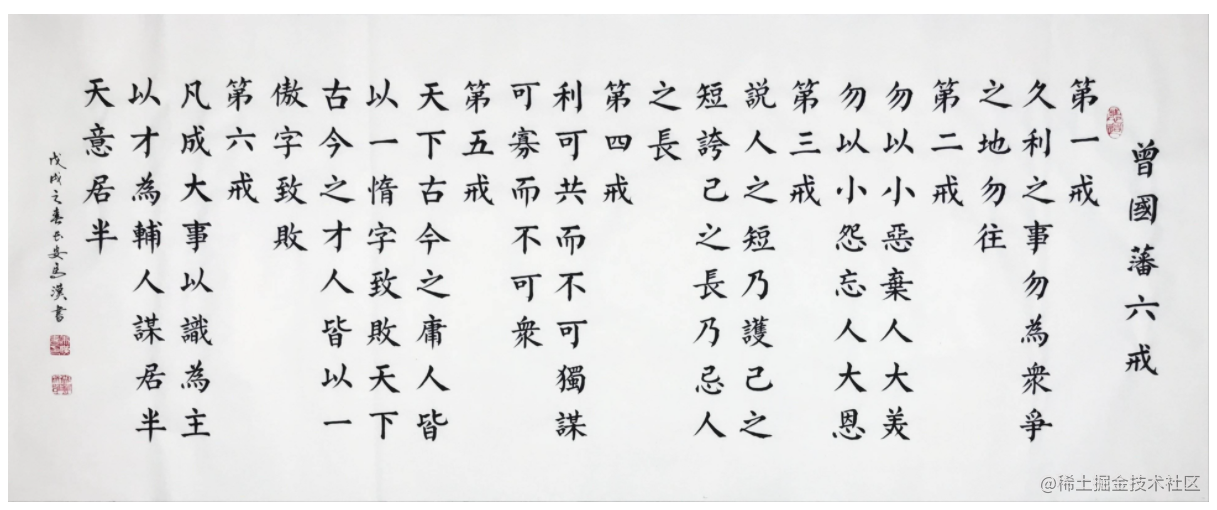 曾國藩六戒
第一戒
久利之事勿為衆爭
之地勿往
第二戒
勿以小惡棄人大美
勿以小怨忘人大恩
第三戒
説人之短乃護己之
短誇己之長乃忌人
之長
第四戒
利可共而不可獨謀
可寡而不可衆
第五戒
天下古今之庸人皆
以一惰字致敗天下
古今之才人皆以一
傲字致敗
第六戒
凡成大事以識為主
以才為輔人謀居半
天意居半
戊戌之春長安馬漢書
@稀土掘金技术社区